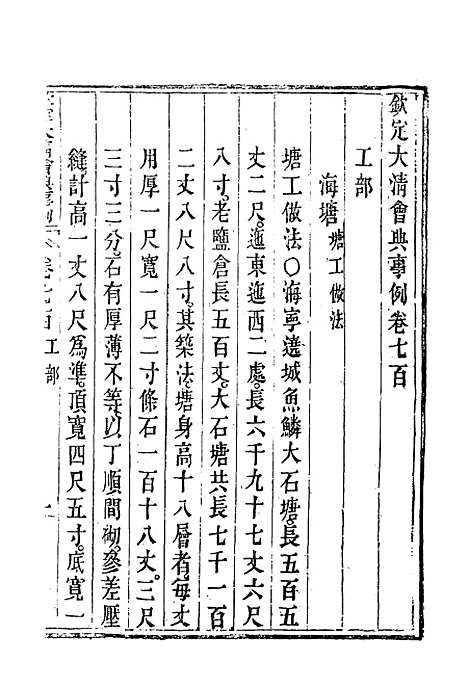 欽定大清會典事例卷七百
工部
海塘塘工做法
塘工做法〇海寧遶城魚鱗大石塘。長五百五
丈二尺。迤東迤西二處。長六千九十七丈六尺
八寸。老鹽倉長五百丈。大石塘共長七千一百
二丈八尺八寸。其築法。塘身高十八層者。每丈
用厚一尺寬一尺二寸條石一百十八丈。三尺
三寸三分。石有厚薄不等。以丁順間砌。參差壓
縫。計高一丈八尺爲準。頂寬四尺五寸。底寬一
卷七百 工部 一